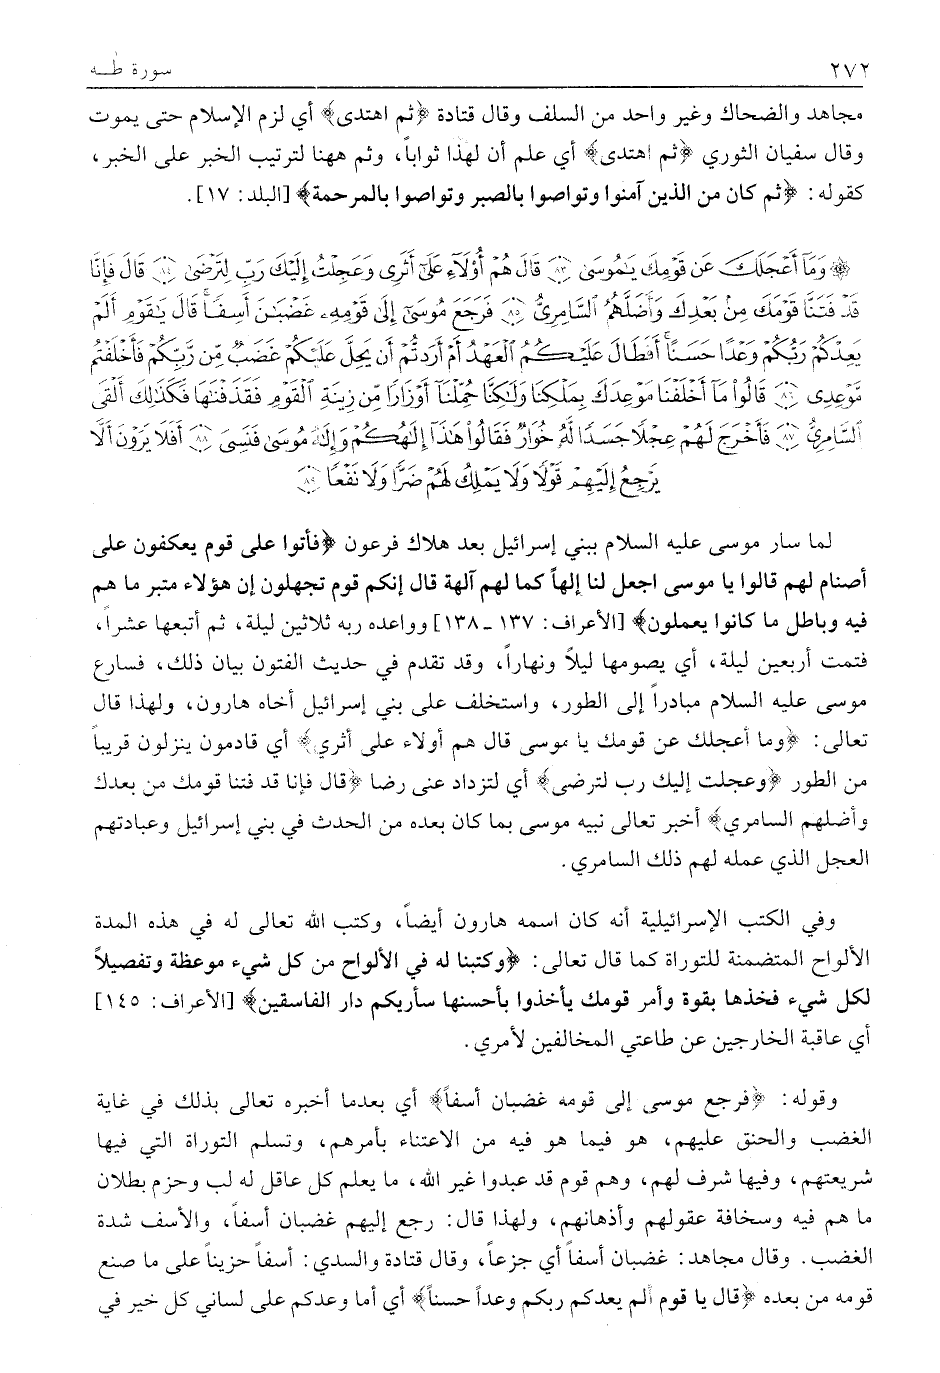 ٢٧٢ سورة طـه
مجاهد والضحاك وغير واحد من السلف وقال قتادة ﴿ثم اهتدى﴾ أي لزم الإسلام حتى يموت
وقال سفيان الثوري ﴿ثم اهتدى﴾ أي علم أن لهذا ثواباً، وثم ههنا لترتيب الخبر على الخبر،
كقوله: ﴿ثم كان من الذين آمنوا وتواصوا بالصبر وتواصوا بالمرحمة﴾ [البلد: ١٧].
۞ وَمَآ أَعْجَلَكَ عَن قَوْمِكَ يَٰمُوسَىٰ ﴿٨٣﴾ قَالَ هُمْ أُوْلَآءِ عَلَىٰٓ أَثَرِى وَعَجِلْتُ إِلَيْكَ رَبِّ لِتَرْضَىٰ ﴿٨٤﴾ قَالَ فَإِنَّا
قَدْ فَتَنَّا قَوْمَكَ مِنۢ بَعْدِكَ وَأَضَلَّهُمُ ٱلسَّامِرِىُّ ﴿٨٥﴾ فَرَجَعَ مُوسَىٰٓ إِلَىٰ قَوْمِهِۦ غَضْبَٰنَ أَسِفًا ۚ قَالَ يَٰقَوْمِ أَلَمْ
يَعِدْكُمْ رَبُّكُمْ وَعْدًا حَسَنًا ۚ أَفَطَالَ عَلَيْكُمُ ٱلْعَهْدُ أَمْ أَرَدتُّمْ أَن يَحِلَّ عَلَيْكُمْ غَضَبٌ مِّن رَّبِّكُمْ فَأَخْلَفْتُم
مَّوْعِدِى ﴿٨٦﴾ قَالُوا۟ مَآ أَخْلَفْنَا مَوْعِدَكَ بِمَلْكِنَا وَلَٰكِنَّا حُمِّلْنَآ أَوْزَارًا مِّن زِينَةِ ٱلْقَوْمِ فَقَذَفْنَٰهَا فَكَذَٰلِكَ أَلْقَى
ٱلسَّامِرِىُّ ﴿٨٧﴾ فَأَخْرَجَ لَهُمْ عِجْلًا جَسَدًا لَّهُۥ خُوَارٌ فَقَالُوا۟ هَٰذَآ إِلَٰهُكُمْ وَإِلَٰهُ مُوسَىٰ فَنَسِىَ ﴿٨٨﴾ أَفَلَا يَرَوْنَ أَلَّا
يَرْجِعُ إِلَيْهِمْ قَوْلًا وَلَا يَمْلِكُ لَهُمْ ضَرًّا وَلَا نَفْعًا ﴿٨٩﴾
لما سار موسى عليه السلام ببني إسرائيل بعد هلاك فرعون ﴿فأتوا على قوم يعكفون على
أصنام لهم قالوا يا موسى اجعل لنا إلهاً كما لهم آلهة قال إنكم قوم تجهلون إن هؤلاء متبر ما هم
فيه وباطل ما كانوا يعملون﴾ [الأعراف: ١٣٧ ـ ١٣٨] وواعده ربه ثلاثين ليلة، ثم أتبعها عشراً،
فتمت أربعين ليلة، أي يصومها ليلاً ونهاراً، وقد تقدم في حديث الفتون بيان ذلك، فسارع
موسى عليه السلام مبادراً إلى الطور، واستخلف على بني إسرائيل أخاه هارون، ولهذا قال
تعالى: ﴿وما أعجلك عن قومك يا موسى قال هم أولاء على أثري﴾ أي قادمون ينزلون قريباً
من الطور ﴿وعجلت إليك رب لترضى﴾ أي لتزداد عني رضا ﴿قال فإنا قد فتنا قومك من بعدك
وأضلهم السامري﴾ أخبر تعالى نبيه موسى بما كان بعده من الحدث في بني إسرائيل وعبادتهم
العجل الذي عمله لهم ذلك السامري.
وفي الكتب الإسرائيلية أنه كان اسمه هارون أيضاً، وكتب الله تعالى له في هذه المدة
الألواح المتضمنة للتوراة كما قال تعالى: ﴿وكتبنا له في الألواح من كل شيء موعظة وتفصيلاً
لكل شيء فخذها بقوة وأمر قومك يأخذوا بأحسنها سأريكم دار الفاسقين﴾ [الأعراف: ١٤٥]
أي عاقبة الخارجين عن طاعتي المخالفين لأمري.
وقوله: ﴿فرجع موسى إلى قومه غضبان أسفاً﴾ أي بعدما أخبره تعالى بذلك في غاية
الغضب والحنق عليهم، هو فيما هو فيه من الاعتناء بأمرهم، وتسلم التوراة التي فيها
شريعتهم، وفيها شرف لهم، وهم قوم قد عبدوا غير الله، ما يعلم كل عاقل له لب وحزم بطلان
ما هم فيه وسخافة عقولهم وأذهانهم، ولهذا قال: رجع إليهم غضبان أسفاً، والأسف شدة
الغضب. وقال مجاهد: غضبان أسفاً أي جزعاً، وقال قتادة والسدي: أسفاً حزيناً على ما صنع
قومه من بعده ﴿قال يا قوم ألم يعدكم ربكم وعداً حسناً﴾ أي أما وعدكم على لساني كل خير في